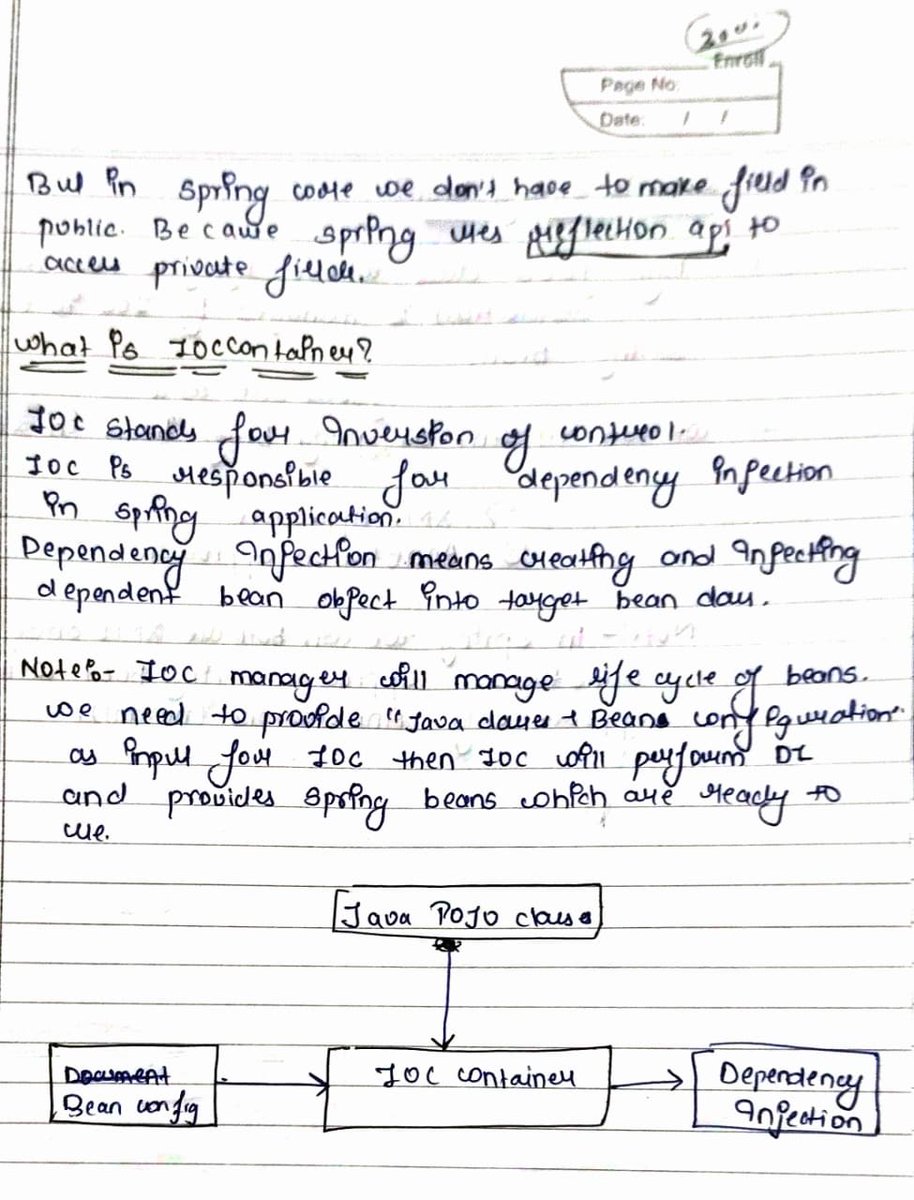 Enroll
Page No.
Date: / /
But in spring code we don't have to make field in
public. Because spring uses reflection api to
access private fields.
What is IOC Container?
IOC stands for Inversion of control.
IOC is responsible for dependency injection
in spring application.
Dependency Injection means creating and Injecting
dependent bean object into target bean class.
Note:- IOC manager will manage life cycle of beans.
we need to provide "Java classes + Beans configuration"
as input for IOC then IOC will perform DI
and provides spring beans which are ready to
use.
Java POJO classes
Document
Bean config
IOC container
Dependency
Injection